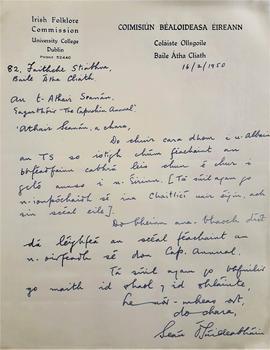 Irish Folklore
Commission
University College
Dublin
Phone 52440
COIMISIÚN BÉALOIDEASA ÉIREANN
Coláiste Ollsgoile
Baile Átha Cliath
82, Faithche Stiabhna,
Baile Átha Cliath
16/2/1950
An t-Athair Seanán,
Eagarthóir "The Capuchin Annual"
'Athair Seanán, a chara,
Do chuir cara dhom i n-Albain
an TS so istigh chúm féachaint an
bhféadfainn cabhrú leis chun é chur i
gcló annso i n-Éirinn. [Tá súil agam go
n-iompóchaidh sé ina Chaitliceach uair éigin, ach
sin scéal eile].
Do bheinn ana-bhaoch díot
dá léighfeá an scéal féachaint an
n-oirfeadh sé don Cap. Annual.
Tá súil agam go bhfuilir
go maith id shaol, 7 id shláinte,
Le mór-mheas ort,
do chara,
Seán Ó Súilleabháin